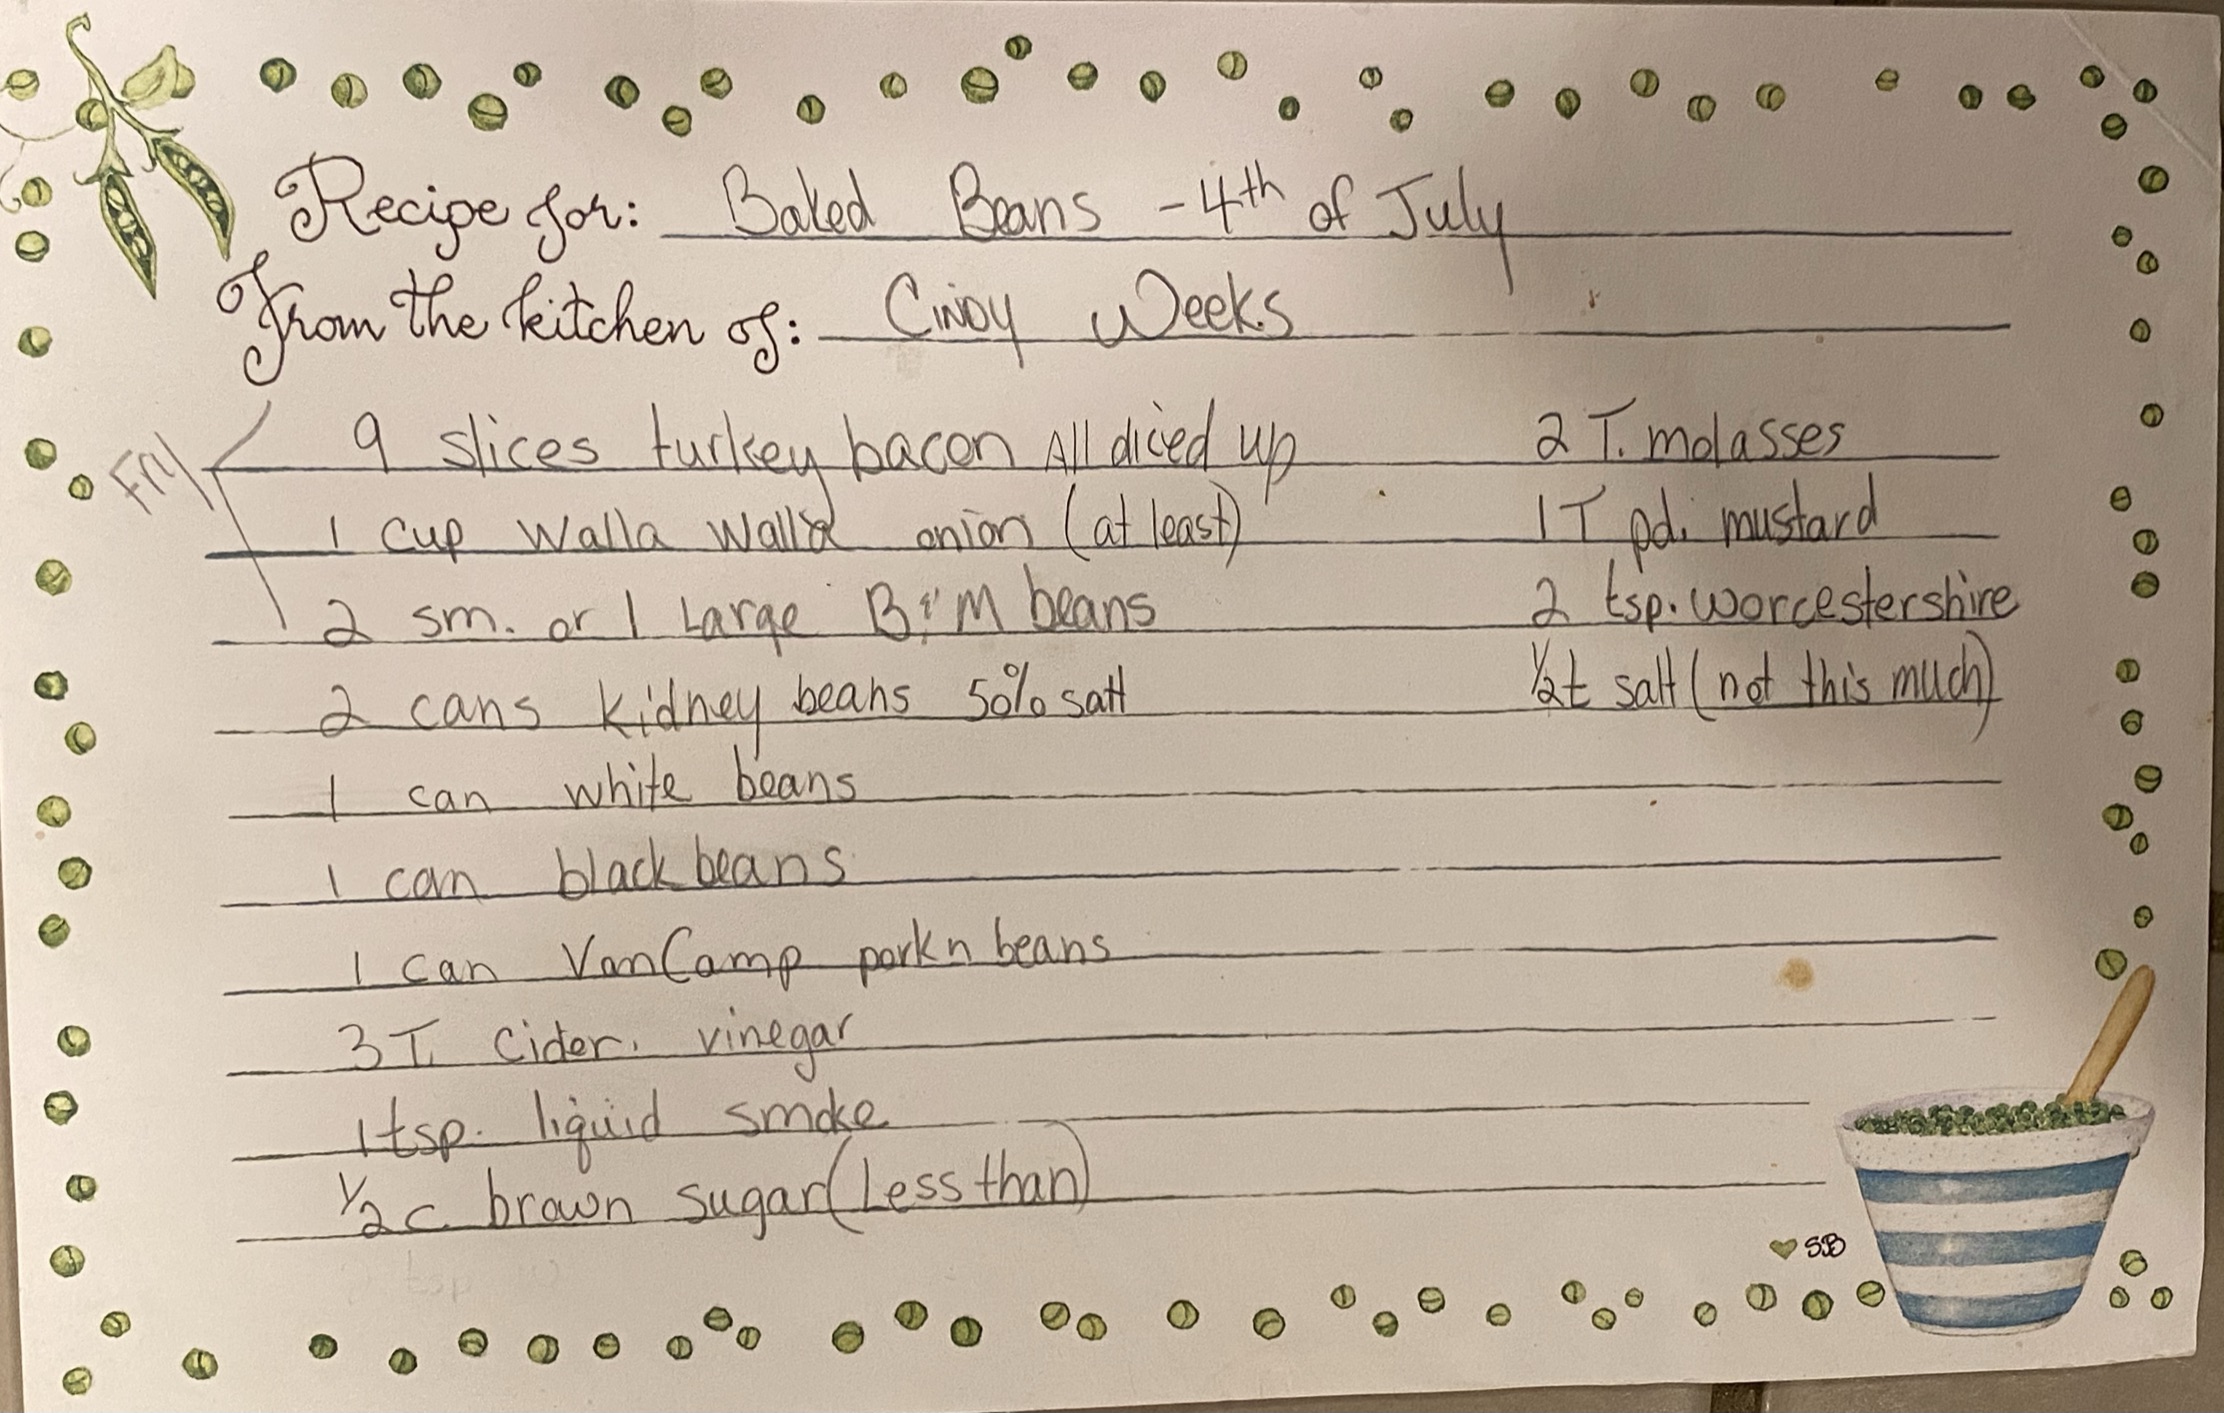 Recipe for: Baked Beans - 4th of July
From the kitchen of: Cindy Weeks
Fry
9 slices turkey bacon All diced up
1 cup Walla Walla onion (at least)
2 sm. or 1 Large B&M beans
2 cans kidney beans 50% salt
1 can white beans
1 can black beans
1 can VanCamp pork n beans
3 T. Cider. vinegar
1 tsp. liquid smoke
1/2 c. brown sugar (Less than)
2 T. molasses
1 T pd. mustard
2 tsp. worcestershire
1/2 t salt (not this much)
SB